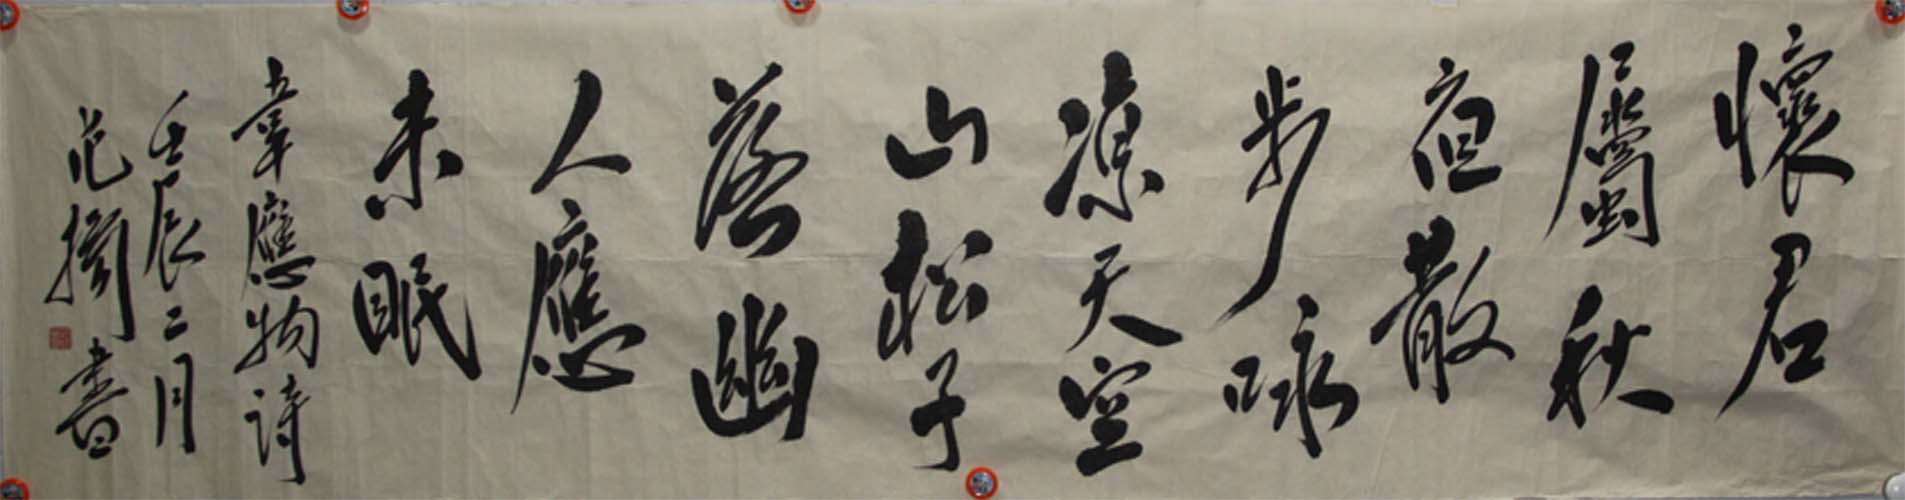 懷君
屬秋
亱散
步咏
凉天空
山松子
落幽
人應
未眠
韋應物詩
壬辰二月
范書